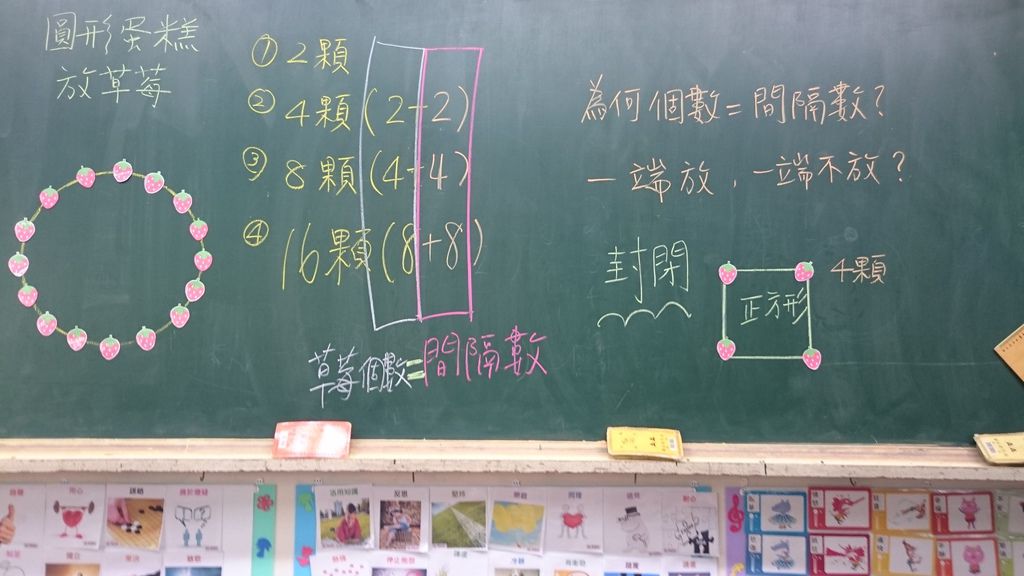 圓形蛋糕
放草莓
① 2顆
② 4顆(2+2)
③ 8顆(4+4)
④ 16顆(8+8)
草莓個數=間隔數
為何個數=間隔數?
一端放,一端不放?
封閉
正方形
4顆